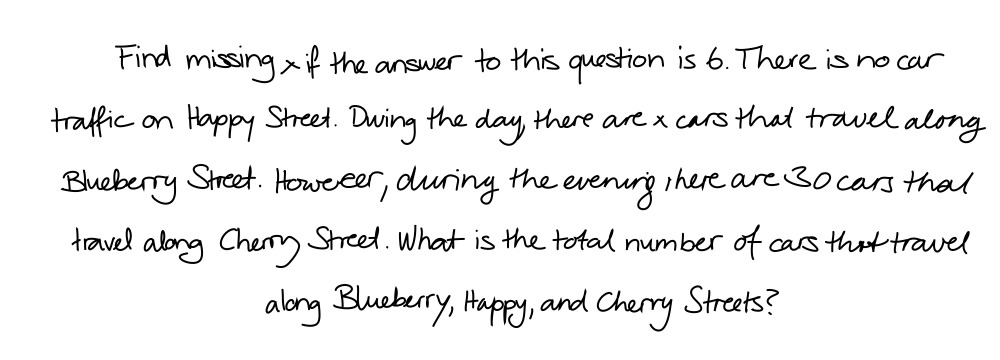 Find missing x if the answer to this question is 6. There is no car
traffic on Happy Street. During the day, there are x cars that travel along
Blueberry Street. However, during the evening, there are 30 cars that
travel along Cherry Street. What is the total number of cars that travel
along Blueberry, Happy, and Cherry Streets?